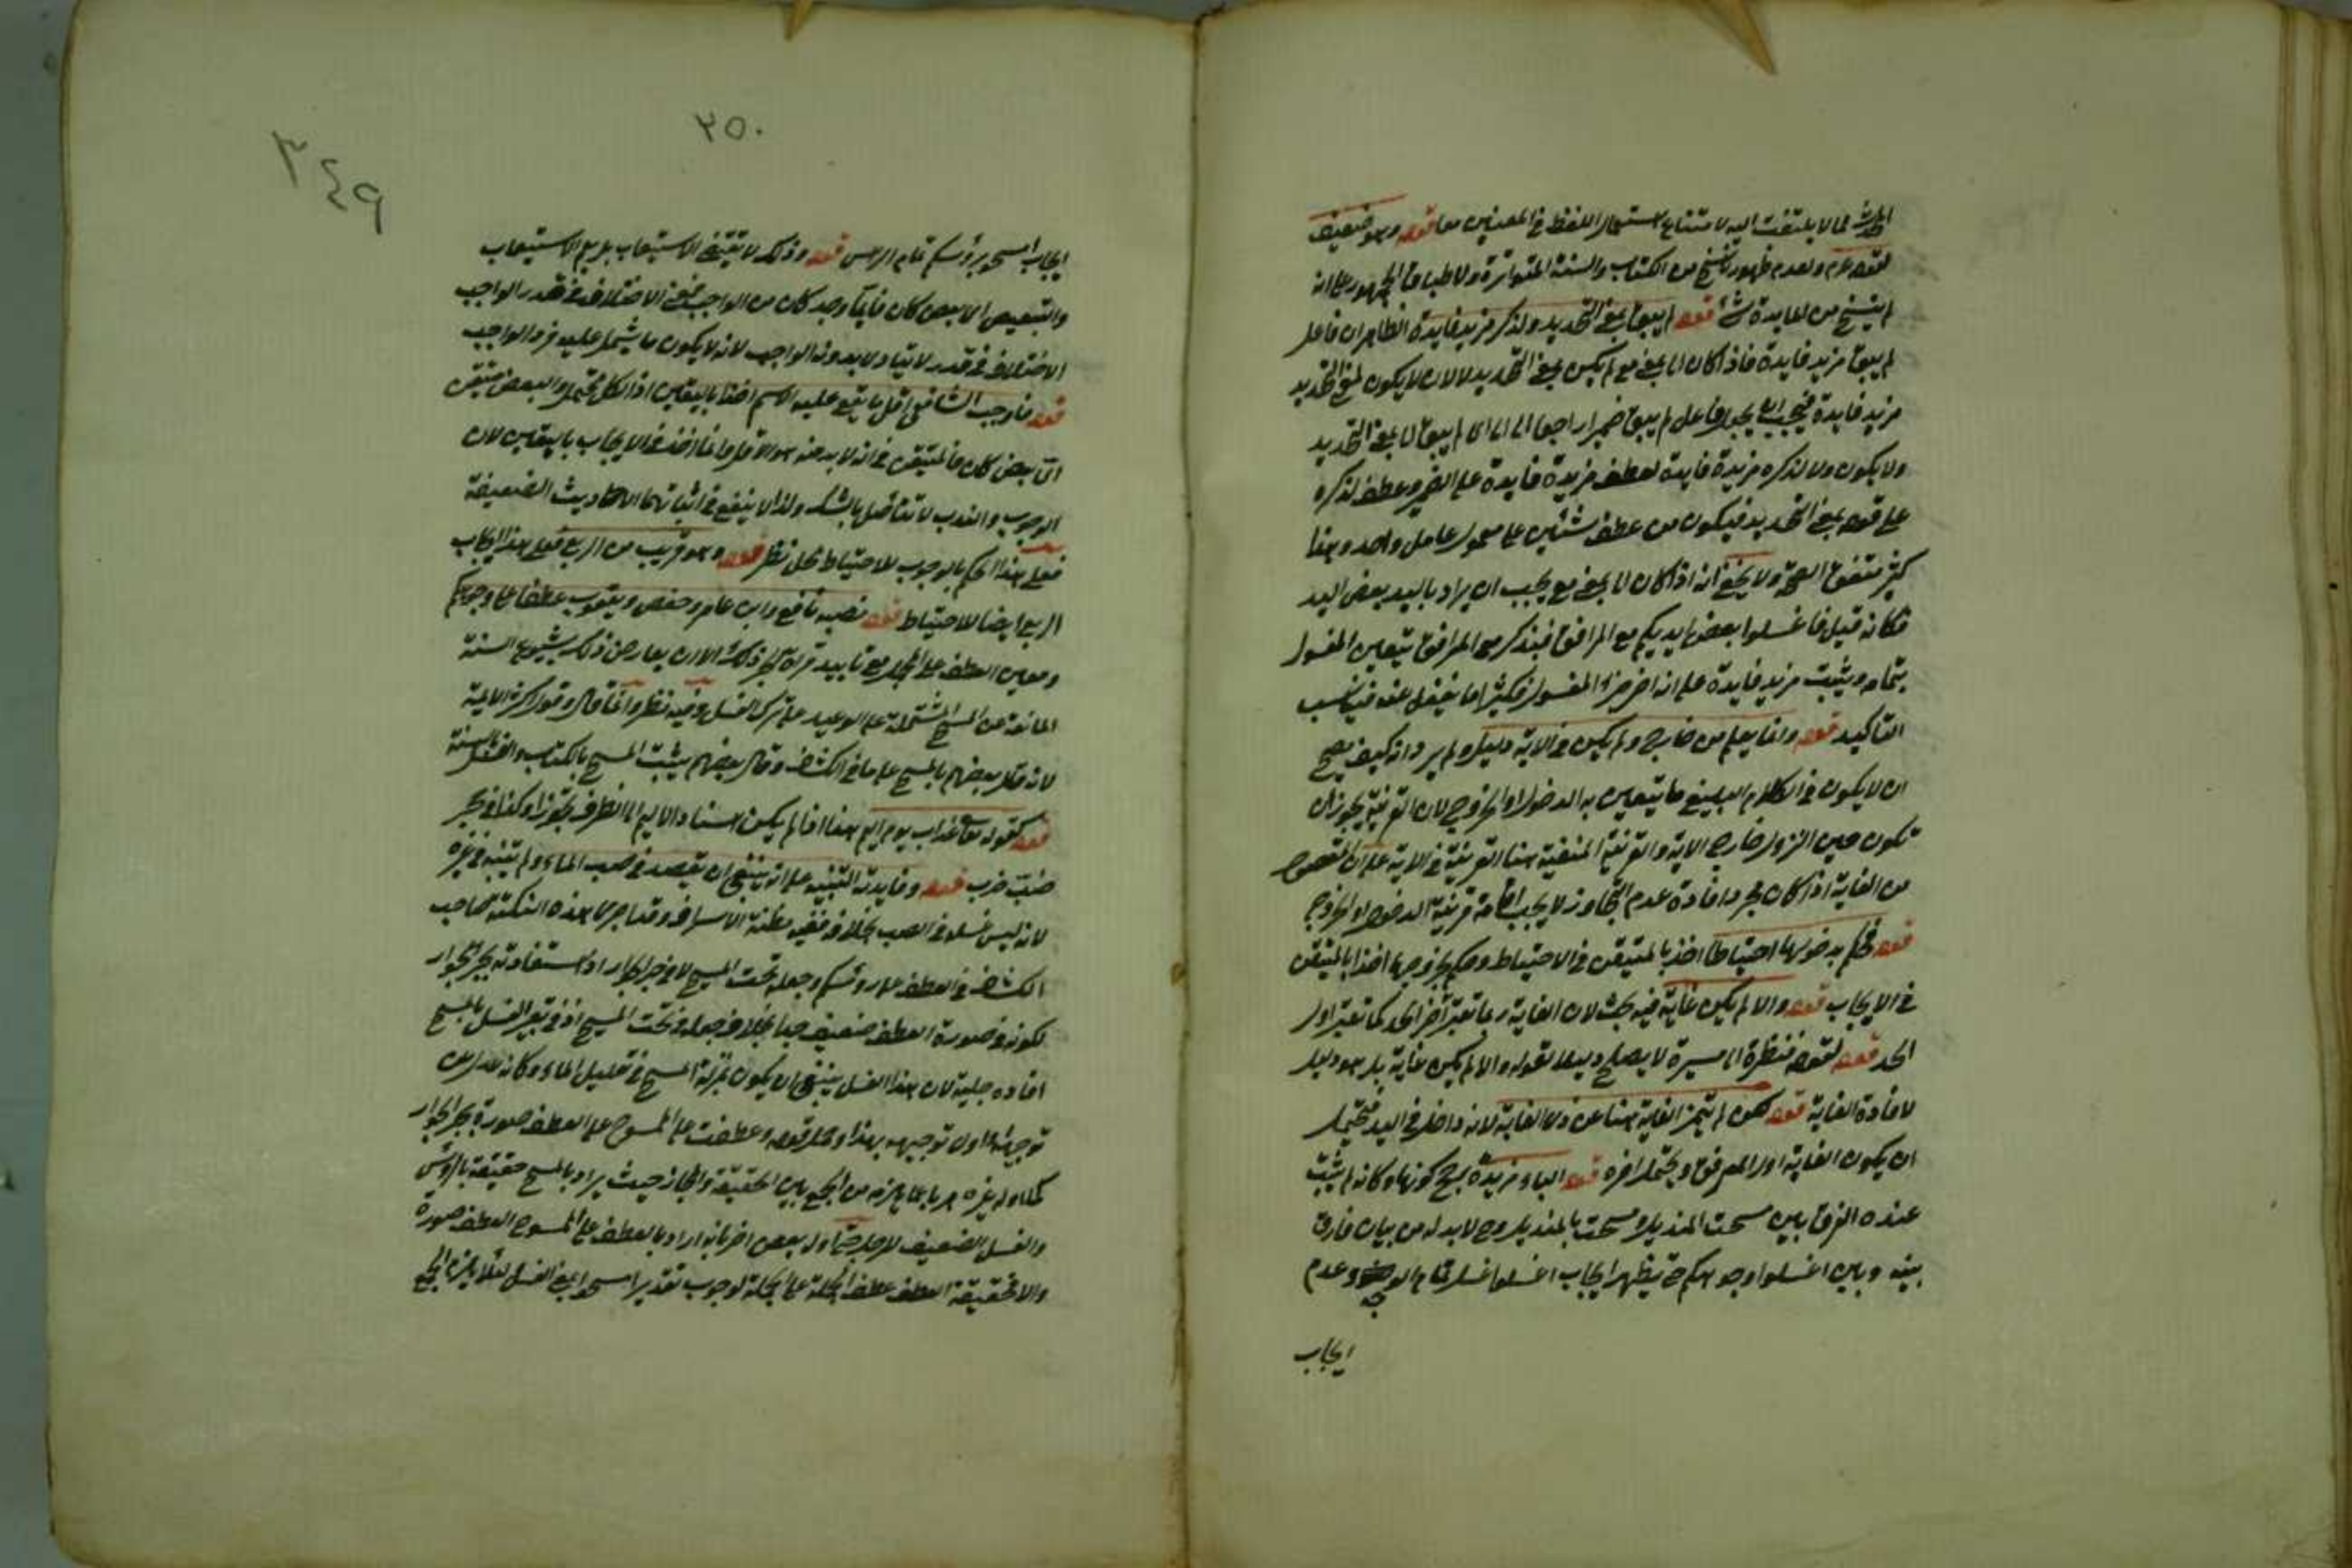 الحدث مما لا يلتفت اليه لامتناع استعمال اللفظ في المعنيين معا قوله وهو ضعيف
لقوله عم ولعدم ظهور ناسخ من الكتاب والسنة المتواترة ولاطباق الجمهور على انه
لم ينسخ من المايدة شئ قوله لم يبق لمعنى التحديد ولذكره مزيد فايدة الظاهر ان فاعل
لم يبق مزيد فايدة فاذا كان الى بمعنى مع لم يكن لمعنى التحديد لا لان لا يكون لمعنى التحديد
مزيد فايدة فيجب ان يجعل فاعل لم يبق ضميرا راجعا الى الى اي لم يبق الى بمعنى التحديد
ولا يكون ولا لذكره مزيدة فايدة لعطف مزيدة فايدة على الضمير وعطف لذكره
على قوله لمعنى التحديد فيكون من عطف شيئين على معمولي عامل واحد وهذا
كثير متفق الصحة ولا يخفى انه اذا كان الى بمعنى مع يجب ان يراد باليد بعض اليد
فكانه قيل فاغسلوا بعض ايديكم مع المرافق فبذكر مع المرافق يتعين المغسول
بتمامه ويثبت مزيد فايدة على انه اخر جزء المغسول فكثيرا ما يغفل عنه فيناسب
التاكيد قوله وانما يعلم من خارج ولم يكن في الاية دليل ولم يرد انه كيف يصح
ان لا يكون في الكلام البليغ ما يتعين به الدخول او الخروج لان القرينة يجوز ان
تكون حين النزول خارج الاية والقرينة المنفية هنا القرينة في الاية على ان المقصود
من الغاية اذا كان مجرد افادة عدم التجاوز لا يجب اقامة قرينة الدخول او الخروج
قوله فحكم بدخولها احتياطا اخذ بالمتيقن في الاحتياط وحكم بخروجها اخذا بالمتيقن
في الايجاب قوله والا لم يكن غاية فيه بحث لان الغاية ربما تعتبر آخر الحد كما تعتبر اول
الحد قوله لقوله فنظرة الى ميسرة لا يصلح دليلا لقوله والا لم يكن غاية بل هو دليل
لافادة الغاية قوله لكن لم تتميز الغاية هنا عن ذي الغاية لانه داخل في اليد فيحتمل
ان يكون الغاية اول المرفق ويحتمل اخره قوله الباء مزيدة يصح كونها وكانه لم يثبت
عنده الفرق بين مسحت المنديل ومسحت بالمنديل وح لا بد له من بيان فارق
بينه وبين اغسلوا وجوهكم حتى يظهر ايجاب اغسلوا غسل تمام الوجه وعدم
ايجاب
٢٥٠
٣٤٩
ايجاب امسحوا برؤسكم تمام الراس قوله وذلك لا يقتضي الاستيعاب بل يعم الاستيعاب
والتبعيض الا بعض كان فايما وجد كان من الواجب فمعنى الاختلاف في قدر الواجب
الاختلاف في قدر لا يتادى بدونه الواجب لانه لا يكون ما يشمل عليه فرد الواجب
قوله فاوجب الشافعي اقل ما يقع عليه الاسم اخذا باليقين اذ الكل محتمل والبعض متيقن
اي بعض كان فالمتيقن في انه لا بد منه هو الاقل وانما اخذ في الايجاب باليقين لان
الوجوب والندب لا تتفاضل بالشك ولذا لا ينفع في اثباتهما الاحاديث الضعيفة
فعلى هذا الحكم بالوجوب للاحتياط محل نظر قوله وهو قريب من الربع فعلى هذا ايجاب
الربع ايضا للاحتياط قوله نصبه نافع وابن عامر وحفص ويعقوب عطفا على وجوهكم
ومعين العطف على المحل مع تاييد قراة الجر ذلك الا ان يعارض ذلك بشيوع السنة
المانعة من المسح المشتملة على الوعيد على ترك الغسل وفيه نظر وانما قال وقول اكثر الايمة
لانه قال بعضهم بالمسح على ما في الكشاف وقال بعضهم يثبت المسح بالكتاب والغسل بالسنة
قوله كقوله تعا عذاب يوم اليم هذا اذا لم يكن اسناد الاليم الى الظرف تجوزا وكذا في جحر
ضب خرب قوله وفايدته التنبيه على انه ينبغي ان يقصد في صب الماء ولم يتنبه في غيره
لانه ليس غسله في الصب بخلافه ففيه مظنة الاسراف وقد اجرى هذه النكتة صاحب
الكشاف في العطف على رؤسكم وجعله تحت المسح لا في جر الجوار اذ استفادته بجر الجوار
لكونه في صورة العطف ضعيف جدا بخلاف جعله في تحت المسح اذ في تعبير الغسل بالمسح
افادة جلية لان هذا الغسل ينبغي ان يكون بمنزلة المسح في تقليل الماء وكانه لم يرض
توجيهه الاول توجيهه بهذا وحمل قوله وعطفت على الممسوح على العطف صورة بجر الجوار
كما اوله غيره هربا مما يلزمه من الجمع بين الحقيقة والمجاز حيث يراد بالمسح حقيقة بالرؤس
والغسل الضعيف للارجل اوله بعض اخر بانه اراد بالعطف على الممسوح العطف صورة
والا فحقيقة العطف عطف الجملة على الجملة لوجوب تقدير امسحوا بمعنى الغسل لئلا يلزم الجمع